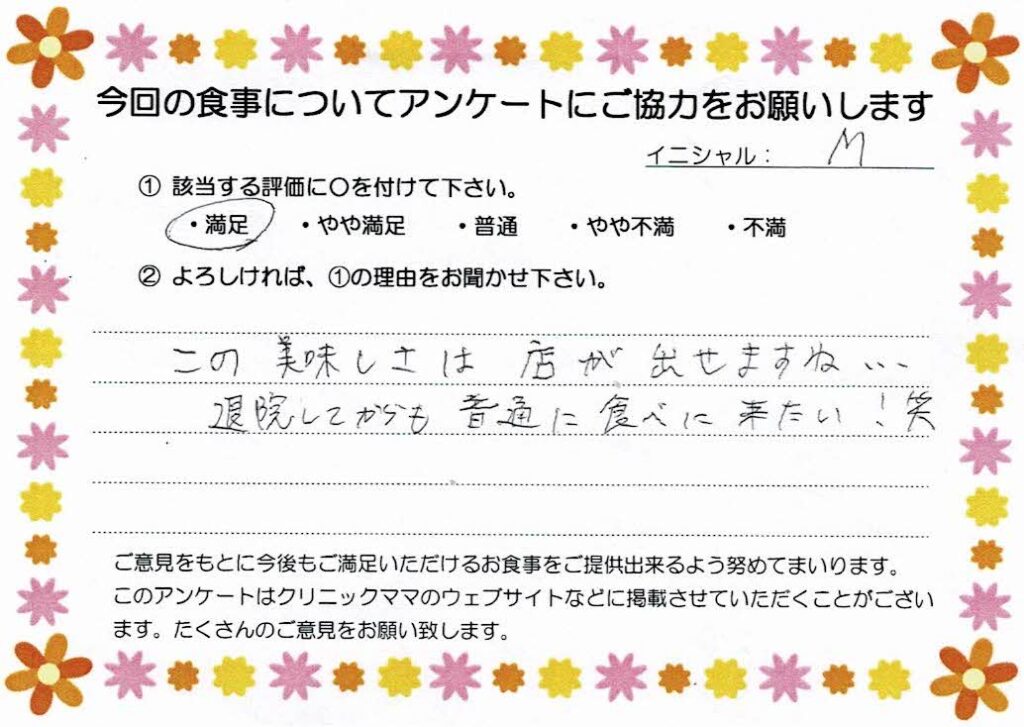 今回の食事についてアンケートにご協力をお願いします
イニシャル： M
① 該当する評価に〇を付けて下さい。
・満足 ・やや満足 ・普通 ・やや不満 ・不満
② よろしければ、①の理由をお聞かせ下さい。
この美味しさは店が出せますね...
退院してからも普通に食べに来たい！笑
ご意見をもとに今後もご満足いただけるお食事をご提供出来るよう努めてまいります。
このアンケートはクリニックママのウェブサイトなどに掲載させていただくことがござい
ます。たくさんのご意見をお願い致します。